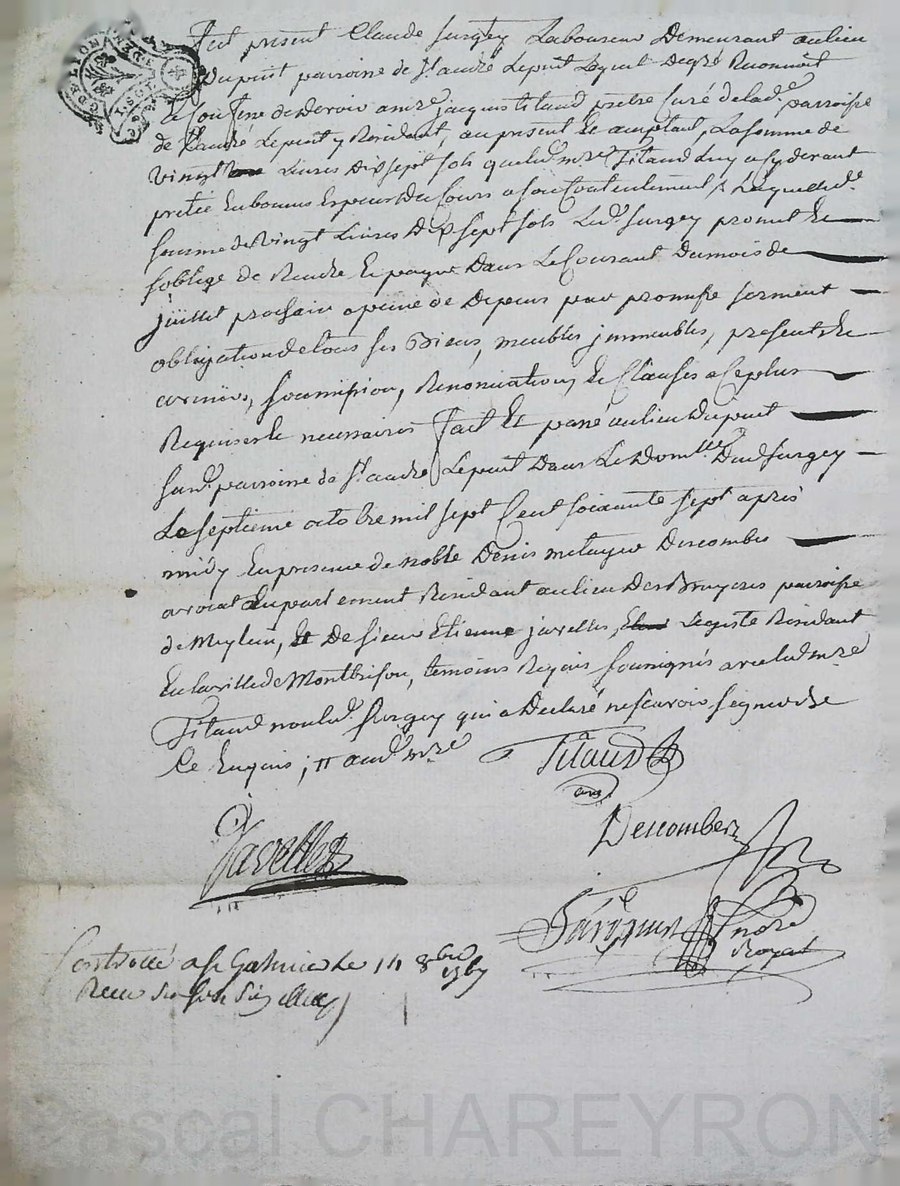 GDE LYON
Fut present Claude Surgey Laboureur Demeurant au lieu
Dupuit paroisse de St. andré Lepuit Lequel De gré Reconnoit
Et Confesse de devoir a mre jacques titaud pretre Curé de lade. parroisse
de St andré Lepuit y Residant, au present Et acceptant, La somme de
vingt Livres Dix sept sols que led. mre Titaud luy a cy devant
pretée En bonnes Especes Du Cours a son Contentement, Laquelle de.
somme de vingt Livres Dix sept sols Led. Surgey promet Et
s'oblige de Rendre Et payer Dans Le Courant Du mois de
juillet prochain a peine de Depens par promesse serment
obligation de tous ses Biens, meubles immeubles, presents Et
avenirs, soumission, Renonciation, Et Clauses a Ce plus
Requises Et necessaires fait Et passé au lieu Dupuit
susd. paroisse de St. andré Lepuit Dans Le Domlle Dud. Surgey
Le septieme octobre mil sept Cent soixante sept après
midy En presence de noble Denis metayer Descombes
avocat En parlement Residant au lieu Des Bruyeres paroisse
de Meylieu, Et De sieur Etienne javelles, Legiste Residant
En la ville de Montbrison, temoins Requis soussignés avec led. mre
Titaud non led. Surgey qui a Declaré ne scavoir signer de
Ce Enquis, aud. mre
Titaud
curé
Descombes
Javelles
nore
Royal
Controllé a St Galmier Le 14 8bre 1767
Recu Six sols Six
Pascal CHAREYRON